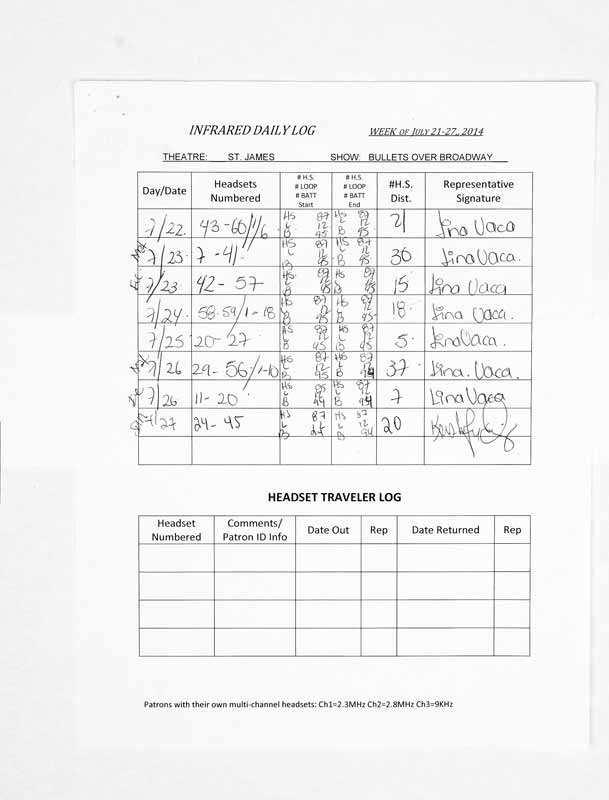 INFRARED DAILY LOG WEEK OF JULY 21-27, 2014
THEATRE: ST. JAMES SHOW: BULLETS OVER BROADWAY
Day/Date Headsets Numbered # H.S. # LOOP # BATT Start # H.S. # LOOP # BATT End #H.S. Dist. Representative Signature
7/22 43-60/1/6 HS 87 L 12 B 95 HS 87 L 12 B 95 21 Lina Vaca
Mat 7/23 7-41 HS 87 L 12 B 95 HS 87 L 12 B 95 30 Lina Vaca.
7/23 42-57 HS 87 L 12 B 95 HS 87 L 12 B 95 15 Lina Vaca
7/24. 58-59/1-18 HS 87 L 12 B 95 HS 87 L 12 B 95 18 Lina Vaca.
7/25 20-27 HS 87 L 12 B 95 HS 87 L 12 B 95 5. Lina Vaca.
Mat 7/26 29-56/1-10 HS 87 L 12 B 95 HS 87 L 12 B 94 37 Lina. Vaca.
7/26 11-20 HS L B 94 HS 87 L 12 B 94 7 Lina Vaca
7/27 24-45 HS 87 L B HS 87 L 12 B 94 20
HEADSET TRAVELER LOG
Headset Numbered Comments/ Patron ID Info Date Out Rep Date Returned Rep
Patrons with their own multi-channel headsets: Ch1=2.3MHz Ch2=2.8MHz Ch3=9KHz